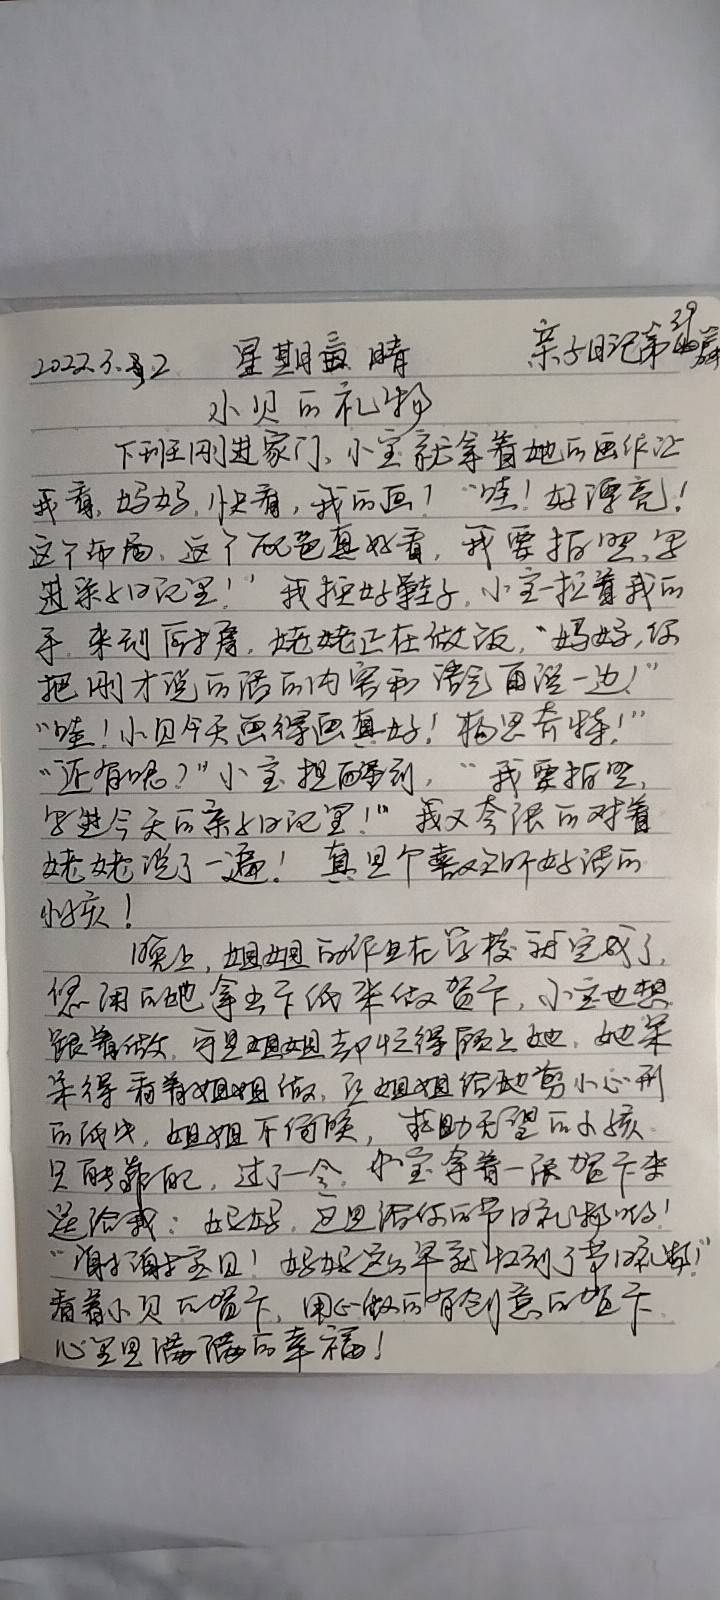 2022.3.2 星期三 晴 亲子日记第39篇
小贝的礼物
下班刚进家门、小宝就拿着她的画作让
我看,妈妈,快看,我的画!“哇!好漂亮!
这个布局、这个配色真好看,我要拍照,写
进亲子日记里!”我换好鞋子,小宝拉着我的
手,来到厨房,姥姥正在做饭,“妈妈,你
把刚才说的话的内容和语气再说一边!”
“哇!小贝今天画得画真好!构思奇特!”
“还有呢?”小宝提醒到,“我要拍照,
写进今天的亲子日记里!”我又夸张的对着
姥姥说了一遍!真是个喜欢听好话的
小孩!
晚上,姐姐的作业在学校就完成了,
悠闲的她拿出卡纸来做贺卡,小宝也想
跟着做,可是姐姐却忙得顾上她,她呆
呆得看着姐姐做,让姐姐给她剪小心形
的纸片,姐姐不伺候,求助无望的小孩
只能靠自己,过了一会,小宝拿着一张贺卡来
送给我:妈妈,这是给你的节日礼物哟!
“谢谢宝贝!妈妈这么早就收到了节日礼物!”
看着小贝的贺卡,用心做的有创意的贺卡,
心里是满满的幸福!